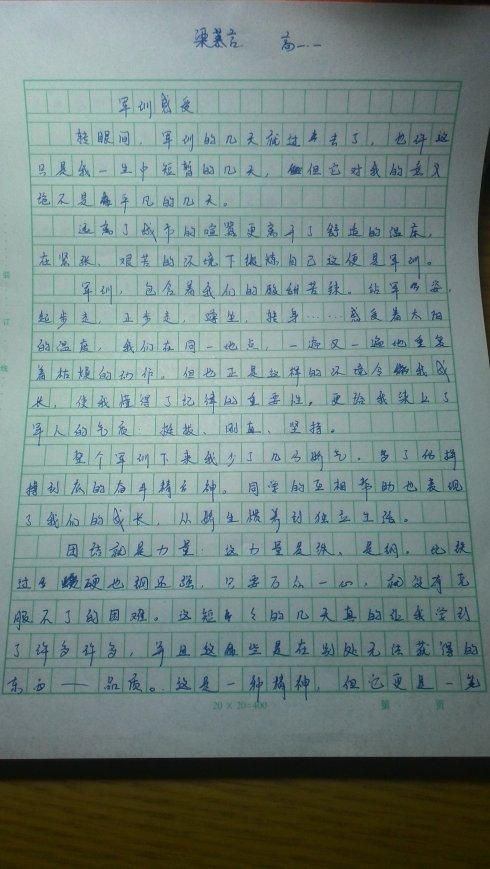 梁慕言 高一.一
军训感受
转眼间，军训的几天就过去了，也许这
只是我一生中短暂的几天，但它对我的意义
绝不是平凡的几天。
远离了城市的喧嚣更离开了舒适的温床，
在紧张、艰苦的环境下锻炼自己这便是军训。
军训，包含着我们的酸甜苦辣。站军姿，
起步走，正步走，蹲坐，转身……感受着太阳
的温度，我们在同一地点，一遍又一遍地重复
着枯燥的动作。但也正是这样的环境令我成
长，使我懂得了纪律的重要性。更给我染上了
军人的气质：挺拔、刚直、坚持。
整个军训下来我少了几分娇气，多了份拼
搏到底的奋斗精神。同学的互相帮助也表现
了我们的成长，从娇生惯养到独立生活。
团结就是力量：这力量是铁，是钢。比铁
还硬比钢还强，只要万众一心，就没有克
服不了的困难。这短的几天真的让我学到
了许多许多，并且这些是在别处无法获得的
东西——品质。这是一种精神，但它更是一笔
20×20=400
第 页
装
订
线